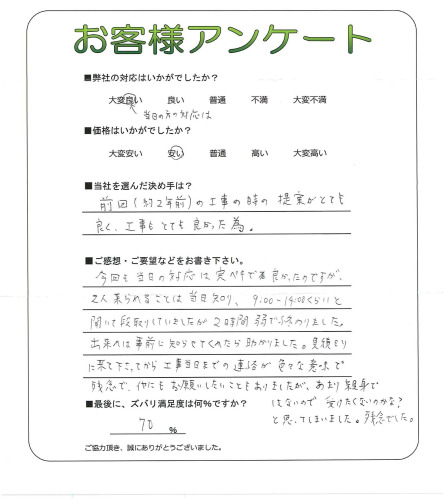 お客様アンケート
■弊社の対応はいかがでしたか?
大変良い 良い 普通 不満 大変不満
当日の方の対応は
■価格はいかがでしたか?
大変安い 安い 普通 高い 大変高い
■当社を選んだ決め手は?
前回(約2年前)の工事の時の提案がとても
良く、工事もとても良かった為。
■ご感想・ご要望などをお書き下さい。
今回も当日の対応は で良かったのですが、
2人来られることは当日知り、9:00~14:00くらいと
聞いて段取りしていましたが2時間弱で終わりました。
出来れば事前に知らせてくれたら助かりました。見積もり
に来て下さってから工事当日までの連絡が色々な意味で
残念で、他にもお願いしたいこともありましたが、あまり
はないので受けたくないのかな?
と思ってしまいました。残念でした。
■最後に、ズバリ満足度は何%ですか?
70 %
ご協力頂き、誠にありがとうございました。